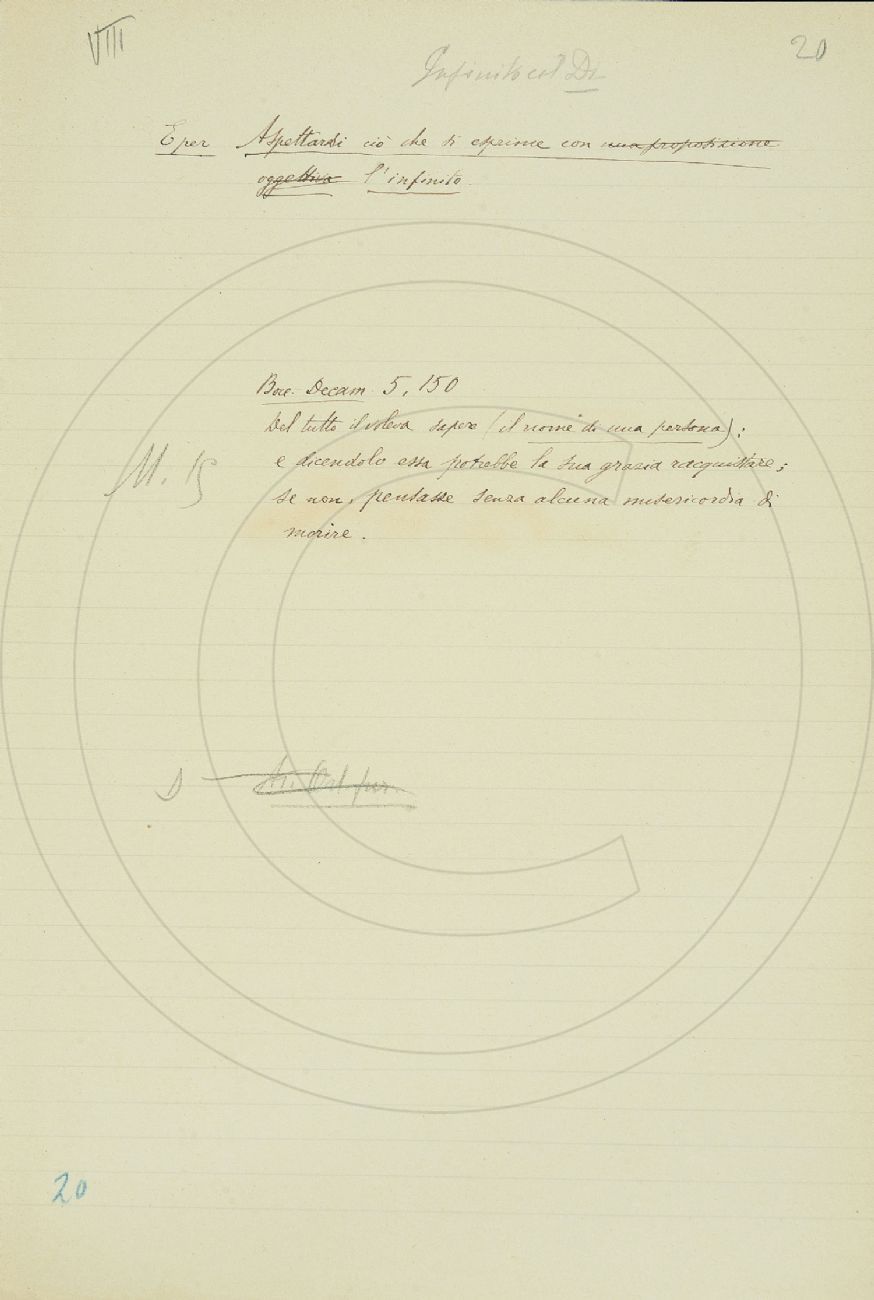 VIII
20
Infinito col Di
E per Aspettarsi ciò che si esprime con una proposizione
oggettiva l'infinito.
Bocc. Decam. 5, 150
Del tutto il voleva sapere (il nome di una persona);
e dicendolo essa potrebbe la sua grazia racquistare;
se non, pensasse senza alcuna misericordia di
morire.
M. 15
20